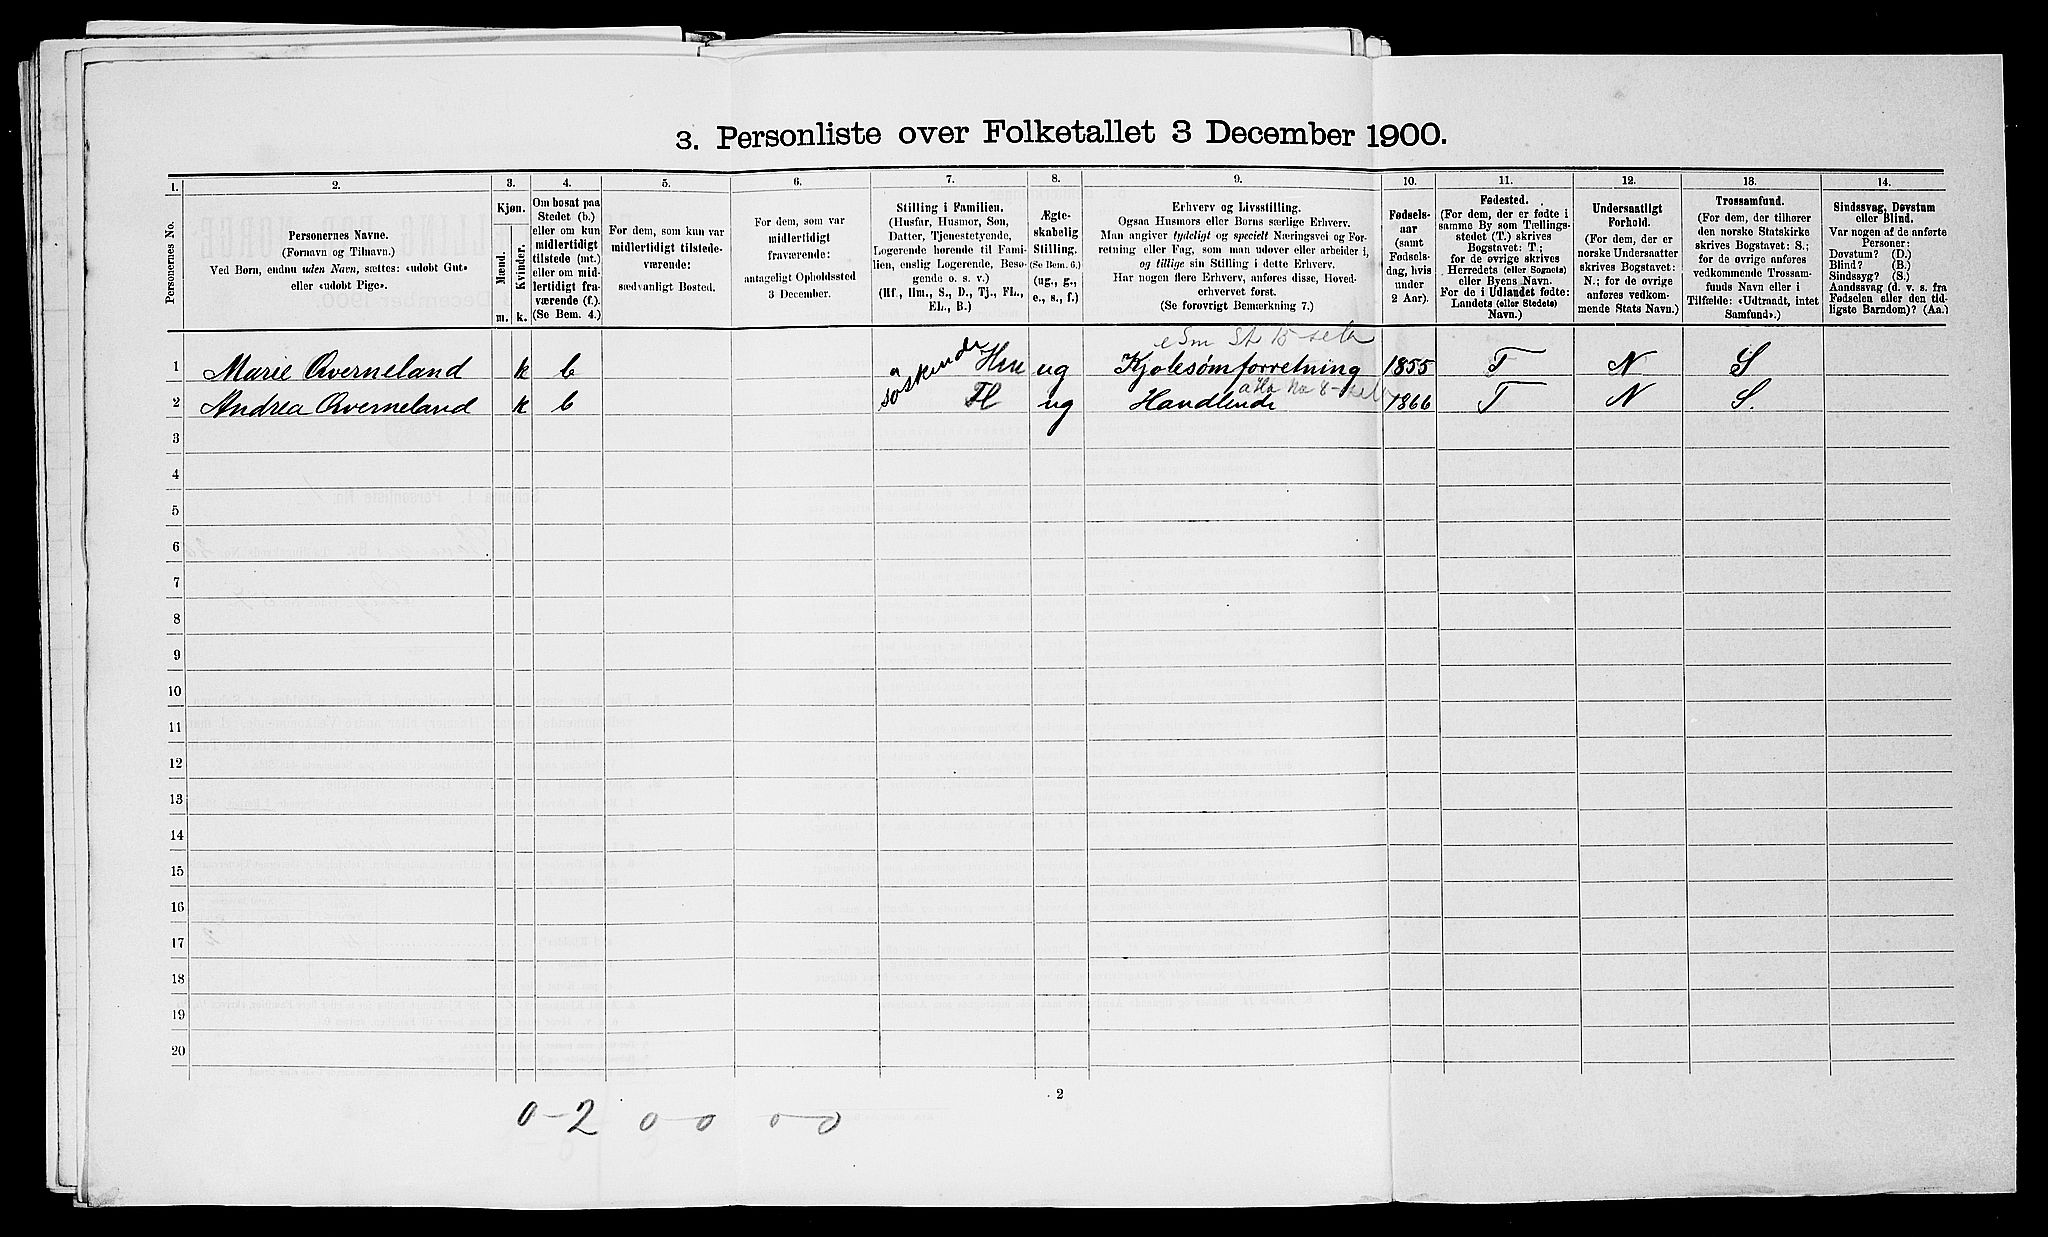 3. Personliste over Folketallet 3 December 1900.
1.
2.
3.
4.
5.
6.
7.
8.
9.
10.
11.
12.
13.
14.
Personernes No.
Personernes Navne.
(Fornavn og Tilnavn.)
Ved Børn, endnu uden Navn, sættes: «udøbt Gut»
eller «udøbt Pige».
Kjøn.
Mænd.
Kvinder.
m.
k.
Om bosat paa
Stedet (b.)
eller om kun
midlertidigt
tilstede (mt.)
eller om mid-
lertidigt fra-
værende (f.).
(Se Bem. 4.)
For dem, som kun var
midlertidigt tilstede-
værende:
sædvanligt Bosted.
For dem, som var
midlertidigt
fraværende:
antageligt Opholdssted
3 December.
Stilling i Familien.
(Husfar, Husmor, Søn,
Datter, Tjenestetyende,
Logerende hørende til Fami-
lien, enslig Logerende, Besø-
gende o. s. v.)
(Hf., Hm., S., D., Tj., FL.,
EL., B.)
Ægte-
skabelig
Stilling.
(Se Bem. 6.)
(ug., g.,
e., s., f.)
Erhverv og Livsstilling.
Ogsaa Husmors eller Børns særlige Erhverv.
Man angiver tydeligt og specielt Næringsvei og For-
retning eller Fag, som man udøver eller arbeider i,
og tillige sin Stilling i dette Erhverv.
Har nogen flere Erhverv, anføres disse, Hoved-
erhvervet først.
(Se forøvrigt Bemerkning 7.)
Fødsels-
aar
(samt
Fødsels-
dag, hvis
under
2 Aar).
Fødested.
(For dem, der er fødte i
samme By som Tællings-
stedet (T.) skrives
Bogstavet: T.;
for de øvrige skrives
Herredets (eller Sognets)
eller Byens Navn.
For de i Udlandet fødte:
Landets (eller Stedets)
Navn.)
Undersaatligt
Forhold.
(For dem, der er
norske Undersaatter
skrives Bogstavet:
N.; for de øvrige
anføres vedkom-
mende Stats Navn.)
Trossamfund.
(For dem, der tilhører
den norske Statskirke
skrives Bogstavet: S.;
for de øvrige anføres
vedkommende Trossam-
funds Navn eller i
Tilfælde: «Udtraadt, intet
Samfund».)
Sindssvag, Døvstum
eller Blind.
Var nogen af de anførte
Personer:
Døvstum? (D.)
Blind? (B.)
Sindssyg? (S.)
Aandssvag (d. v. s. fra
Fødselen eller den tid-
ligste Barndom)? (Aa.)
1 Marie Qverneland k b søskende Hm ug Kjolesømforretning 1855 T N S
2 Andrea Qverneland k b Fl ug Handlende 1866 T N S.
3
4
5
6
7
8
9
10
11
12
13
14
15
16
17
18
19
20
2
0-2 0-0 0-0